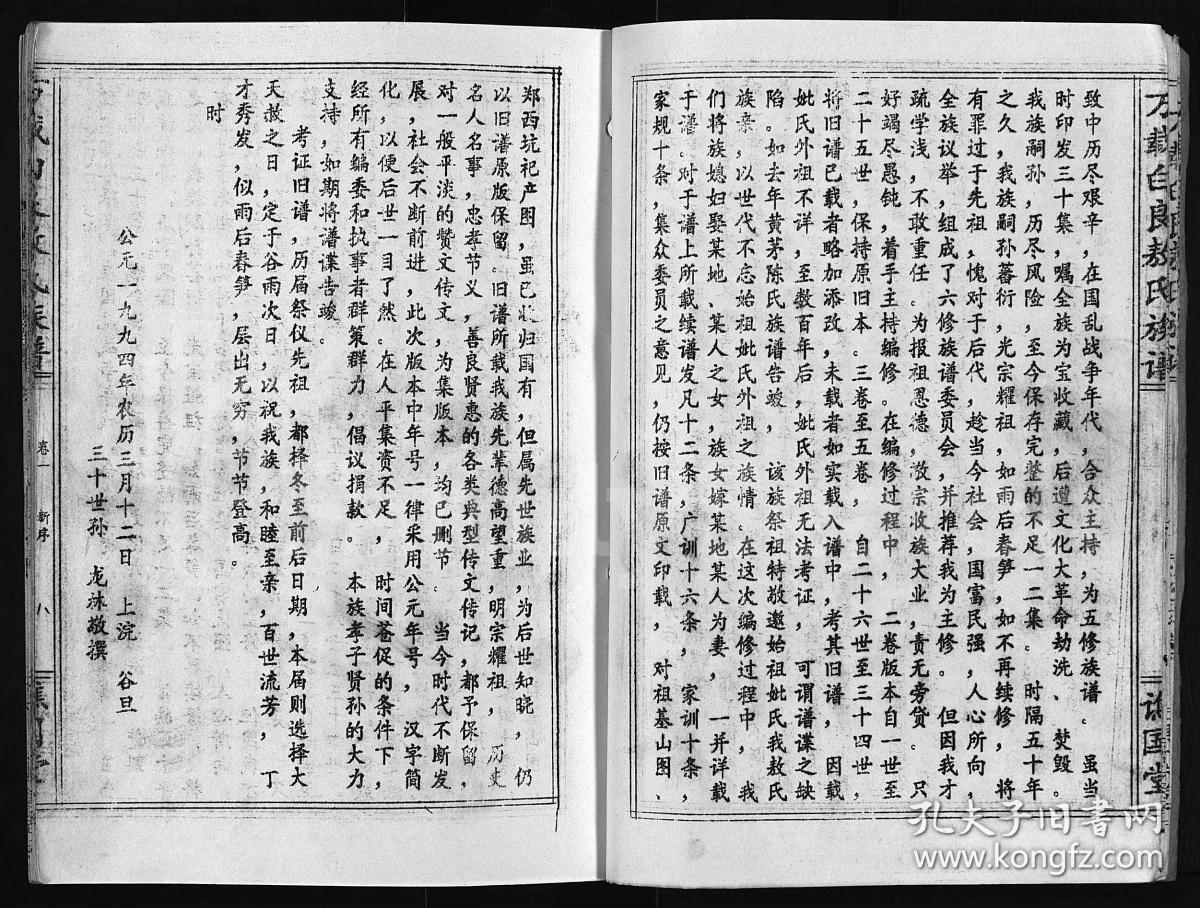 万载白良敖氏族谱
致中历尽艰辛，在国乱战争年代，合众主持，为五修族谱。虽当
时印发三十集，嘱全族为宝收藏，后遭文化大革命劫洗、焚毁。
我族嗣孙，历尽风险，至今保存完整的不足一二集。时隔五十年
之久，我族嗣孙蕃衍，光宗耀祖，如雨后春笋，如不再续修，将
有罪过于先祖，愧对于后代，趁当今社会，国富民强，人心所向，
全族议举，组成了六修族谱委员会，并推荐我为主修。但因我才
疏学浅，不敢重任。为报祖恩德，敦宗收族大业，责无旁贷。只
好竭尽愚钝，着手主持编修。在编修过程中，二卷版本自一世至
二十五世，保持原旧本。三卷至五卷，自二十六世至三十四世，
将旧谱已载者略加添改，未载者如实载入谱中，考其旧谱，因载
妣氏外祖不详，至数百年后，妣氏外祖无法考证，可谓谱谍之缺
陷。如去年黄茅陈氏族谱告竣，该族祭祖特敬邀始祖妣氏我敖氏
族亲，以世代不忘始祖妣氏外祖之族情。在这次编修过程中，我
们将族媳妇娶某地、某人之女，族女嫁某地某人为妻，一并详载
于谱。对于谱上所载续谱发凡十二条，广训十六条，家训十条，
家规十条，集众委员之意见，仍按旧谱原文印载，对祖基山图、
郑西坑祀产图，虽已收归国有，但属先世族业，为后世知晓，仍
以旧谱原版保留。旧谱所载我族先辈德高望重，明宗耀祖，历史
名人名事，忠孝节义，善良贤惠的各类典型传文传记，都予保留，
对一般平淡的赞文传文，为集版本，均已删节。当今时代不断发
展，社会不断前进，此次版本中年号一律采用公元年号，汉字简
化，以便后世一目了然。在人平集资不足，时间苍促的条件下，
经所有编委和执事者群策群力，倡议捐款。本族孝子贤孙的大力
支持，如期将谱谍告竣。
考证旧谱，历届祭仪先祖，都择冬至前后日期，本届则选择大
天赦之日，定于谷雨次日，以祝我族，和睦至亲，百世流芳，丁
才秀发，似雨后春笋，层出无穷，节节登高。
时
公元一九九四年农历三月十二日 上浣 谷旦
三十世孙 龙沐敬撰
卷一 新序 八
孔夫子旧书网
www.kongfz.com